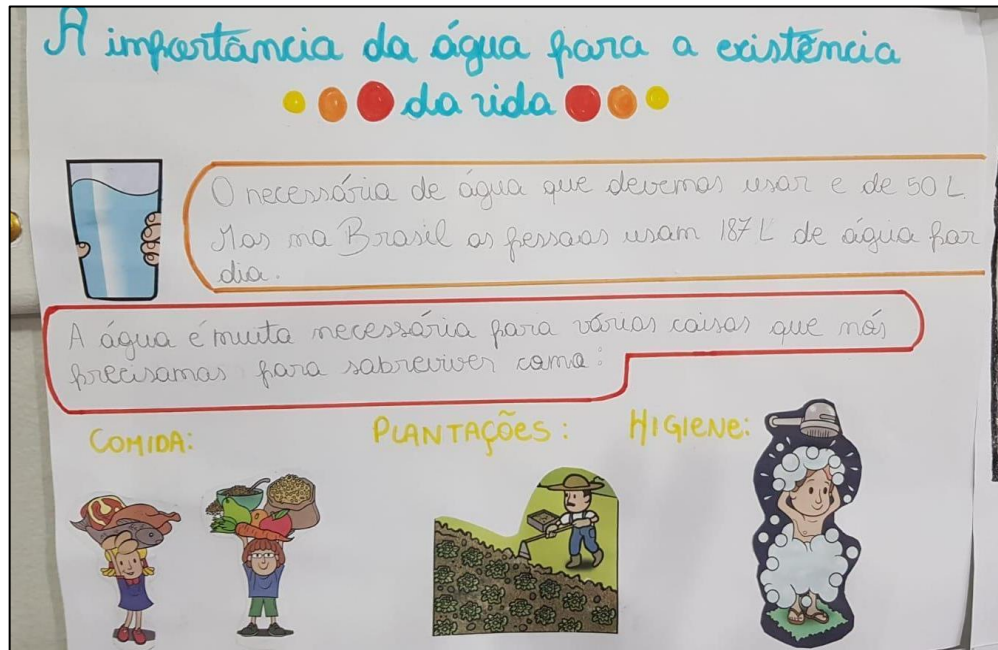 A importância da água para a existência
da vida
O necessário de água que devemos usar e de 50 L.
Mas no Brasil as pessoas usam 187 L de água por
dia.
A água é muito necessária para várias coisas que nós
precisamos para sobreviver como:
COMIDA:
PLANTAÇÕES:
HIGIENE: